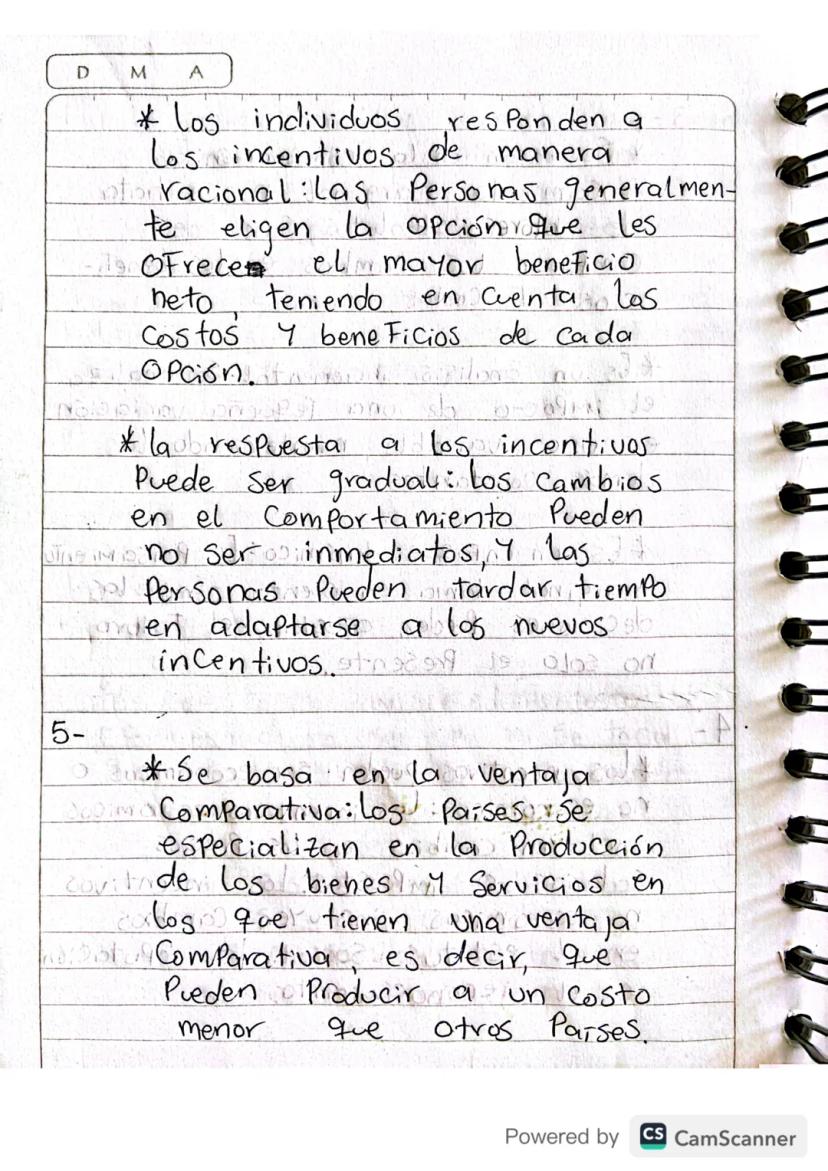 D M A
* Los individuos responden a
los incentivos de manera
racional: las Personas generalmen-
te eligen la opción que les
ofrece el mayor beneficio
neto, teniendo en cuenta los
costos y beneficios de cada
opción.
* la respuesta a los incentivos
Puede ser gradual: los cambios
en el comportamiento Pueden
no ser inmediatos, y las
Personas Pueden tardar tiempo
en adaptarse a los nuevos
incentivos.
5-
* Se basa en la ventaja
Comparativa: los Países se
especializan en la Producción
de los bienes y servicios en
los que tienen una ventaja
Comparativa, es decir, que
Pueden Producir a un costo
menor que otros Países.
Powered by CS CamScanner